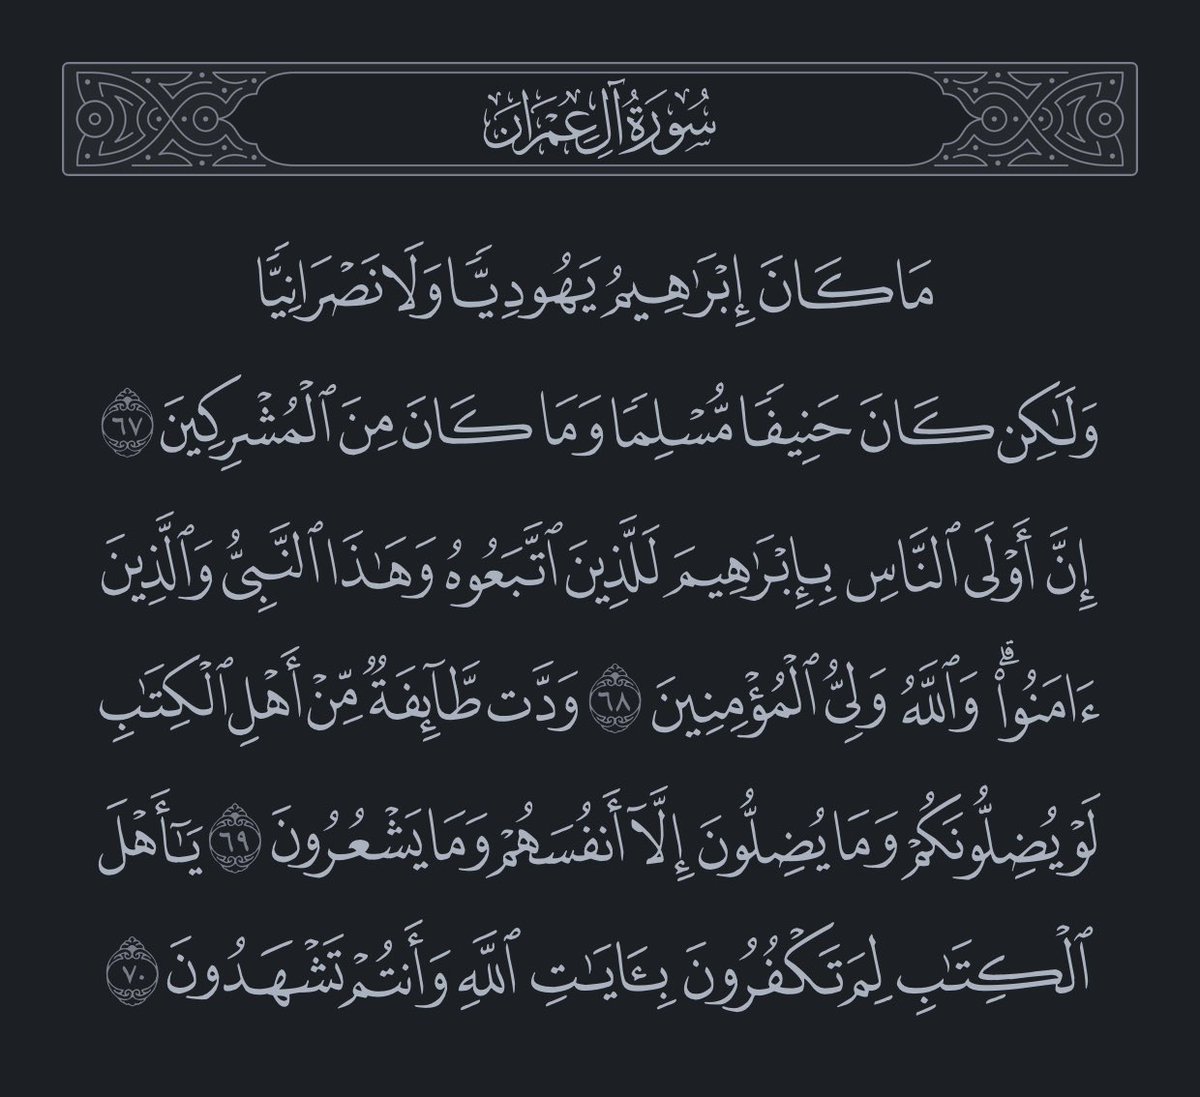 سُورَةُ آلِ عِمْرَانَ
مَا كَانَ إِبْرَٰهِيمُ يَهُودِيًّا وَلَا نَصْرَانِيًّا
وَلَٰكِن كَانَ حَنِيفًا مُّسْلِمًا وَمَا كَانَ مِنَ ٱلْمُشْرِكِينَ ٦٧
إِنَّ أَوْلَى ٱلنَّاسِ بِإِبْرَٰهِيمَ لَلَّذِينَ ٱتَّبَعُوهُ وَهَٰذَا ٱلنَّبِىُّ وَٱلَّذِينَ
ءَامَنُوا۟ ۗ وَٱللَّهُ وَلِىُّ ٱلْمُؤْمِنِينَ ٦٨ وَدَّت طَّآئِفَةٌ مِّنْ أَهْلِ ٱلْكِتَٰبِ
لَوْ يُضِلُّونَكُمْ وَمَا يُضِلُّونَ إِلَّآ أَنفُسَهُمْ وَمَا يَشْعُرُونَ ٦٩ يَٰٓأَهْلَ
ٱلْكِتَٰبِ لِمَ تَكْفُرُونَ بِـَٔايَٰتِ ٱللَّهِ وَأَنتُمْ تَشْهَدُونَ ٧٠